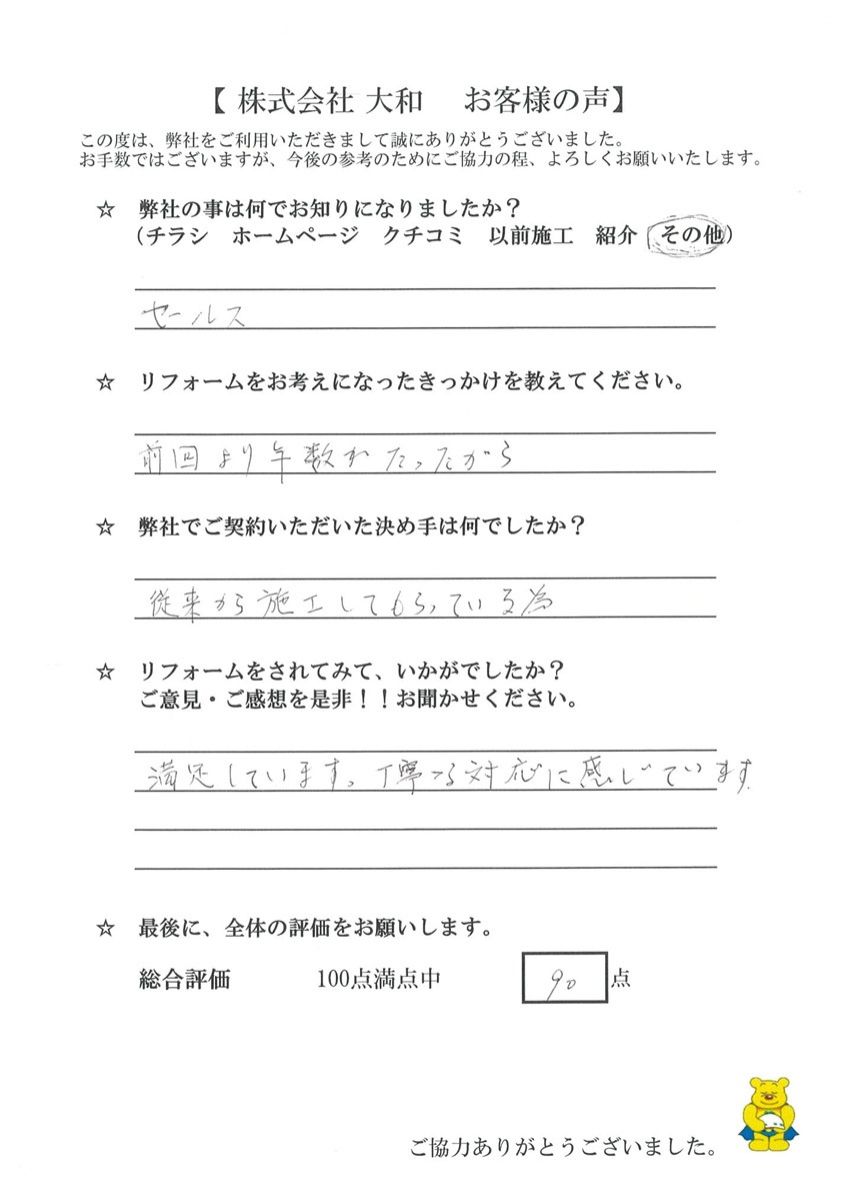 【 株式会社 大和　お客様の声】
この度は、弊社をご利用いただきまして誠にありがとうございました。
お手数ではございますが、今後の参考のためにご協力の程、よろしくお願いいたします。
☆ 弊社の事は何でお知りになりましたか？
（チラシ　ホームページ　クチコミ　以前施工　紹介　その他）
セールス
☆ リフォームをお考えになったきっかけを教えてください。
前回より年数がたったから
☆ 弊社でご契約いただいた決め手は何でしたか？
従来から施工してもらっている為
☆ リフォームをされてみて、いかがでしたか？
ご意見・ご感想を是非！！お聞かせください。
満足しています。丁寧な対応に感じています
☆ 最後に、全体の評価をお願いします。
総合評価　100点満点中　90 点
ご協力ありがとうございました。